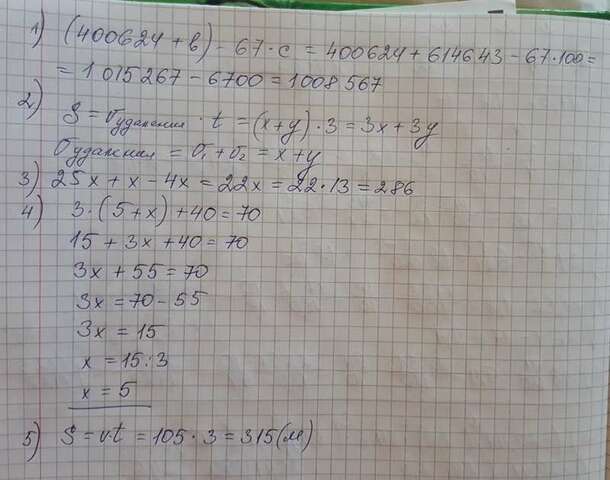 1) (400624 + в) - 67 · с = 400624 + 614643 - 67·100 =
= 1 015 267 - 6700 = 1008 567
2) S = υудаления · t = (x+y) · 3 = 3x + 3y
υудаления = υ₁ + υ₂ = x+y
3) 25x + x - 4x = 22x = 22 · 13 = 286
4) 3 · (5 + x) + 40 = 70
15 + 3x + 40 = 70
3x + 55 = 70
3x = 70 - 55
3x = 15
x = 15 : 3
x = 5
5) S = v·t = 105 · 3 = 315 (м)